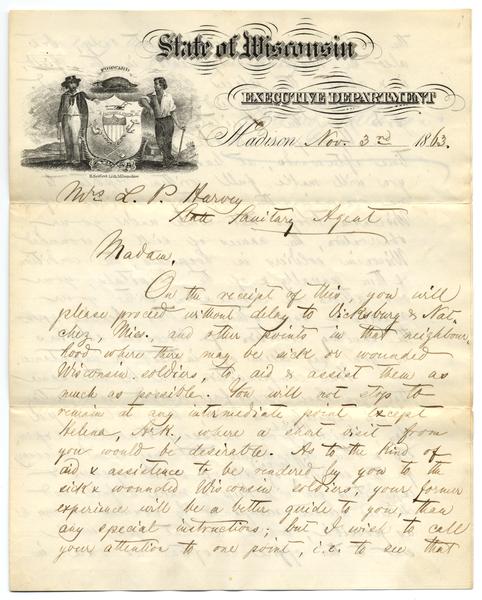 State of Wisconsin
FORWARD
EXECUTIVE DEPARTMENT
Madison Nov. 3rd 1863.
Mrs L. P. Harvey
State Sanitary Agent
Madam,
On the receipt of this, you will
please proceed without delay to Vicksburg & Nat-
chez, Miss., and other points in that neighbour-
hood where there may be sick or wounded
Wisconsin soldiers, to aid & assist them as
much as possible. You will not stop to
remain at any intermediate point except
Helena, Ark, where a short visit from
you would be desirable. As to the kind of
aid & assistence to be rendered by you to the
sick & wounded Wisconsin soldiers, your former
experience will be a better guide to you, than
any special instructions; but I wish to call
your attention to one point, i.e. to see that